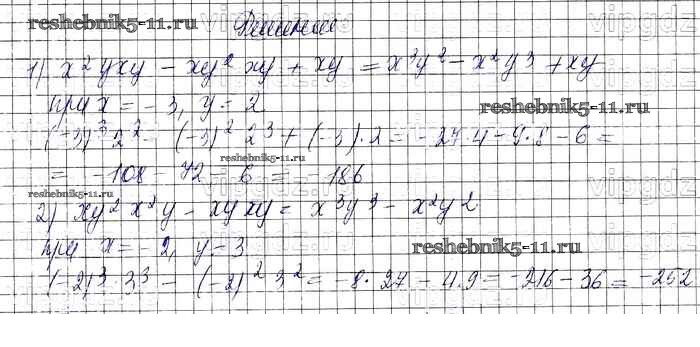 Решение
reshebnik5-11.ru
vipgdz
1) x²yxy - xy² xy + xy = x³y² - x²y³ + xy
при x = -3, y = 2
reshebnik5-11.ru
(-3)³ 2² - (-3)² 2³ + (-3)·2 = -27·4 - 9·8 - 6 =
reshebnik5-11.ru
= -108 - 72 - 6 = -186
reshebnik5-11.ru
vipgdz
2) xy² x²y - xyxy = x³y³ - x²y²
при x = -2, y = 3
reshebnik5-11.ru
(-2)³·3³ - (-2)² 3² = -8·27 - 4·9 = -216 - 36 = -252